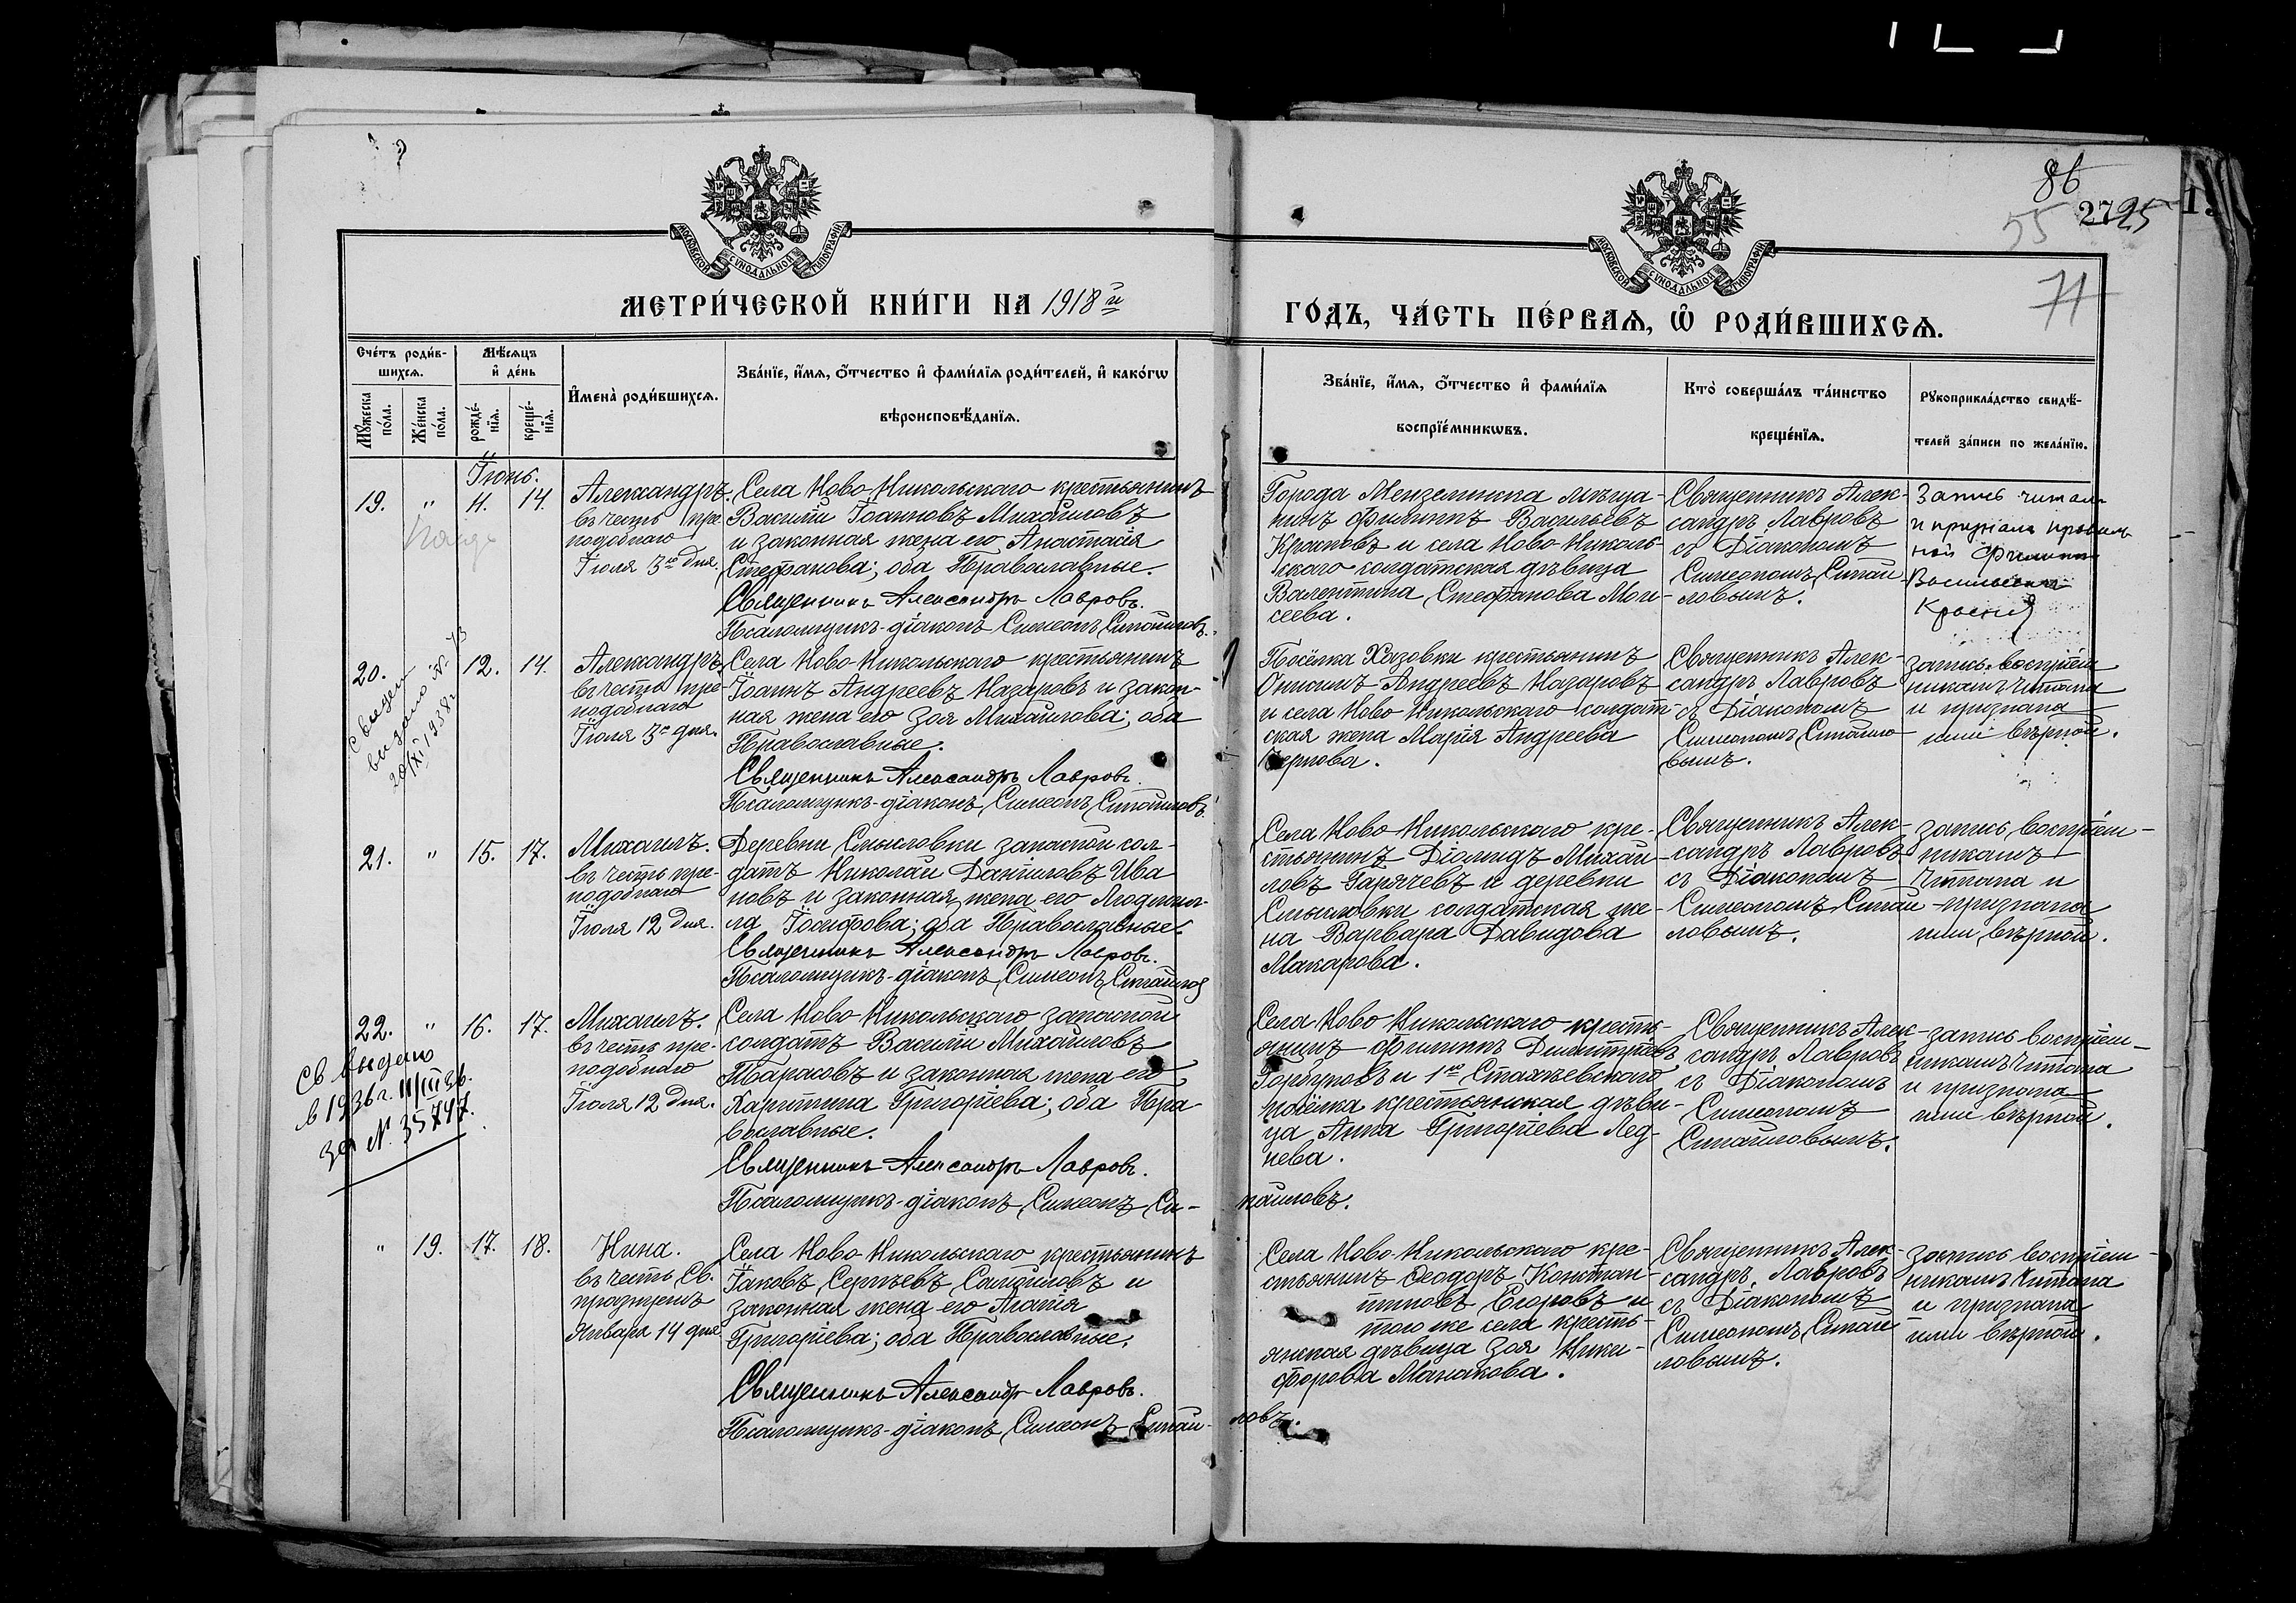 86
55 2725
71
МОСКОВСКОЙ СѴНОДАЛЬНОЙ ТИПОГРАФІИ
МОСКОВСКОЙ СѴНОДАЛЬНОЙ ТИПОГРАФІИ
МЕТРИ́ЧЕСКОЙ КНИ́ГИ НА 1918й
ГО́ДЪ, ЧА́СТЬ ПЕ́РВАѦ, Ѡ҆ РОДИ́ВШИХСѦ.
Сче́тъ роди́в-
шихсѧ.
Мꙋ́жеска по́ла.
Же́нска по́ла.
Мѣ́сѧцъ
и҆ де́нь
рожде́-
нїѧ.
креще́-
нїѧ.
И҆мена̀ роди́вшихсѧ.
Зва́нїе, и҆́мѧ, ѻ҆́тчество и҆ фами́лїѧ роди́телей, и҆ како́гѡ
вѣроисповѣ́данїѧ.
Зва́нїе, и҆́мѧ, ѻ҆́тчество и҆ фами́лїѧ
воспрїе́мникѡвъ.
Кто̀ соверша́лъ та́инство
креще́нїѧ.
Рꙋкоприкла́дство свидѣ́-
телей за́писи по жела́нїю.
Іюнь.
19. " 11. 14.
Александръ.
въ честь пре
подобнаго
Іюля 3го дня.
Села Ново-Никольскаго крестьянинъ
Василій Іоанновъ Михайловъ
и законная жена его Анастасія
Стефанова; оба Православные.
Священникъ Александръ Лавровъ.
Псаломщикъ-діаконъ Симеонъ Сипайловъ.
Города Мензелинска мѣща-
нинъ Филиппъ Васильевъ
Красновъ и села Ново-Николь-
скаго солдатская дѣвица
Валентина Стефанова Мои-
сеева.
Священникъ Алек-
сандръ Лавровъ
съ Діакономъ
Симеономъ Сипай-
ловымъ.
Запись читалъ
и призналъ правиль
ной Филиппъ
Васильевичъ
20. 12. 14.
Свидет
выдано № 73
20/XI 1938г
Александръ
въ честь пре-
подобнаго
Іюля 3го дня.
Села Ново-Никольскаго крестьянинъ
Іоаннъ Андреевъ Назаровъ и закон-
ная жена его Зоя Михайлова; оба
Православные.
Священникъ Александръ Лавровъ.
Псаломщикъ-діаконъ Симеонъ Сипайловъ.
Посёлка Хазовки крестьянинъ
Онисимъ Андреевъ Назаровъ
и села Ново-Никольскаго солдат-
ская жена Марія Андреева
Чернова.
Священникъ Алек-
сандръ Лавровъ
съ Діакономъ
Симеономъ Сипайло
вымъ.
запись воспріем
никамъ читана
и признана
ими вѣрной.
21. " 15. 17.
Михаилъ.
въ честь пре-
подобнаго
Іюля 12 дня.
Деревни Смысловки запасной сол-
датъ Николай Даніиловъ Ива
новъ и законная жена его Людми-
ла Іосифова; оба Православные.
Священникъ Александръ Лавровъ.
Псаломщикъ-діаконъ Симеонъ Сипайлов
Села Ново-Никольскаго кре-
стьянинъ Діомидъ Михай-
ловъ Горячевъ и деревни
Смысловки солдатская же-
на Варвара Давидова
Макарова.
Священникъ Алек-
сандръ Лавровъ
съ Діакономъ
Симеономъ Сипай-
ловымъ.
запись воспріем-
никамъ
читана и
признана
ими вѣрной.
22. " 16. 17.
Св выдано
в 1936г. 11/III 36.
за № 35747.
Михаилъ.
въ честь пре-
подобнаго
Іюля 12 дня.
Села Ново-Никольскаго запасной
солдатъ Василій Михайловъ
Тарасовъ и законная жена его
Харитина Григоріева; оба Пра-
вославные.
Священникъ Александръ Лавровъ.
Псаломщикъ-діаконъ Симеонъ Си-
пайловъ.
Села Ново-Никольскаго кресть-
янинъ Филиппъ Димитріевъ
Горбуновъ и 1го Стахѣевскаго
посёлка крестьянская дѣви-
ца Анна Григоріева Лед-
нева.
Священникъ Алек-
сандръ Лавровъ
съ Діакономъ
Симеономъ
Сипайловымъ.
запись воспріем-
никамъ читана
и признана
ими вѣрной.
" 19. 17. 18.
Нина.
въ честь Св.
празднуемъ
Января 14 дня
Села Ново-Никольскаго крестьянинъ
Іаковъ Сергѣевъ Самойловъ и
законная жена его Агапія
Григоріева; оба Православные.
Священникъ Александръ Лавровъ.
Псаломщикъ-діаконъ Симеонъ Сипай-
ловъ.
Села Ново-Никольскаго кре-
стьянинъ Ѳеодоръ Констан-
тиновъ Егоровъ и
того же села кресть-
янская дѣвица Зоя Ники-
форова Манакова.
Священникъ Алек-
сандръ Лавровъ
съ Діакономъ
Симеономъ Сипай
ловымъ.
запись воспріем-
никамъ читана
и признана
ими вѣрной.